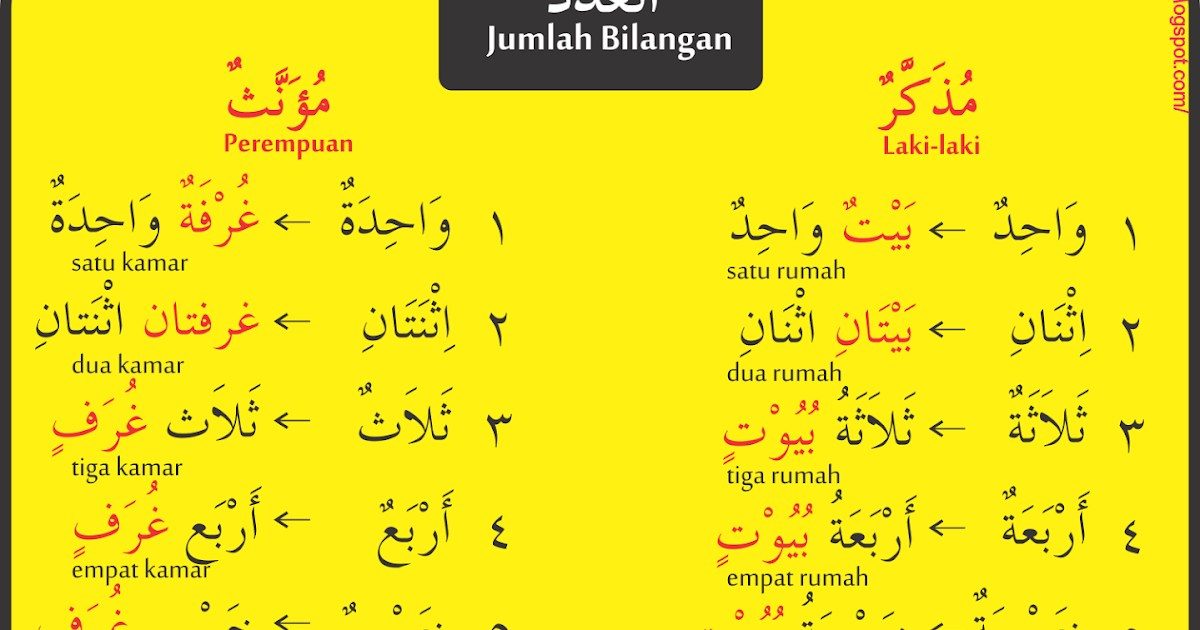 العدد
Jumlah Bilangan
مُذَكَّرٌ
Laki-laki
١ وَاحِدٌ ← بَيْتٌ وَاحِدٌ
satu rumah
٢ اِثْنَانِ ← بَيْتَانِ اثْنَانِ
dua rumah
٣ ثَلاَثَةٌ ← ثَلاَثَةُ بُيُوْتٍ
tiga rumah
٤ أَرْبَعَةٌ ← أَرْبَعَةُ بُيُوْتٍ
empat rumah
مُؤَنَّثٌ
Perempuan
١ وَاحِدَةٌ ← غُرْفَةٌ وَاحِدَةٌ
satu kamar
٢ اِثْنَتَانِ ← غرفتان اثْنَتانِ
dua kamar
٣ ثَلاَثٌ ← ثَلاَث غُرَفٍ
tiga kamar
٤ أَرْبَعٌ ← أَرْبَع غُرَفٍ
empat kamar